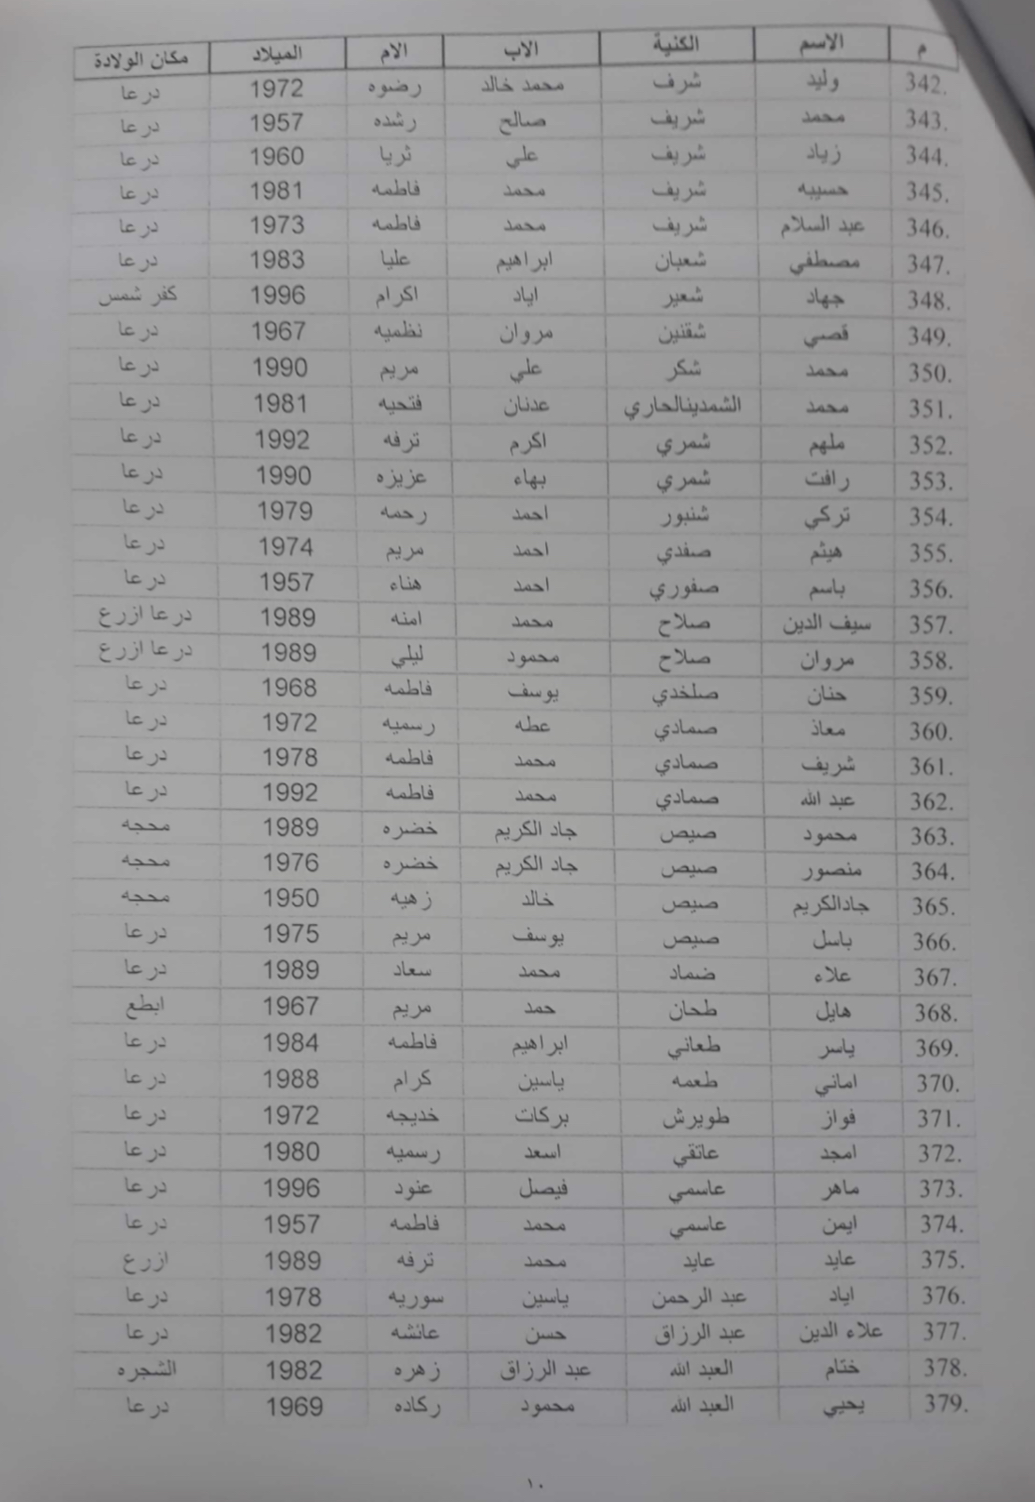 م الاسم الكنية الاب الام الميلاد مكان الولادة
342. وليد شرف محمد خالد رضوه 1972 درعا
343. محمد شريف صالح رشده 1957 درعا
344. زياد شريف علي ثريا 1960 درعا
345. حسيبه شريف محمد فاطمه 1981 درعا
346. عبد السلام شريف محمد فاطمه 1973 درعا
347. مصطفي شعبان ابراهيم عليا 1983 درعا
348. جهاد شعير اياد اكرام 1996 كفر شمس
349. قصي شقنين مروان نظميه 1967 درعا
350. محمد شكر علي مريم 1990 درعا
351. محمد الشمدينالحاري عدنان فتحيه 1981 درعا
352. ملهم شمري اكرم ترفه 1992 درعا
353. رافت شمري بهاء عزيزه 1990 درعا
354. تركي شنبور احمد رحمه 1979 درعا
355. هيثم صفدي احمد مريم 1974 درعا
356. باسم صفوري احمد هناء 1957 درعا
357. سيف الدين صلاح محمد امنه 1989 درعا ازرع
358. مروان صلاح محمود ليلي 1989 درعا ازرع
359. حنان صلخدي يوسف فاطمه 1968 درعا
360. معاذ صمادي عطه رسميه 1972 درعا
361. شريف صمادي محمد فاطمه 1978 درعا
362. عبد الله صمادي محمد فاطمه 1992 درعا
363. محمود صيص جاد الكريم خضره 1989 محجه
364. منصور صيص جاد الكريم خضره 1976 محجه
365. جادالكريم صيص خالد زهيه 1950 محجه
366. باسل صيص يوسف مريم 1975 درعا
367. علاء ضماد محمد سعاد 1989 درعا
368. هايل طحان حمد مريم 1967 ابطع
369. ياسر طعاني ابراهيم فاطمه 1984 درعا
370. اماني طعمه ياسين كرام 1988 درعا
371. فواز طويرش بركات خديجه 1972 درعا
372. امجد عاتقي اسعد رسميه 1980 درعا
373. ماهر عاسمي فيصل عنود 1996 درعا
374. ايمن عاسمي محمد فاطمه 1957 درعا
375. عايد عايد محمد ترفه 1989 ازرع
376. اياد عبد الرحمن ياسين سوريه 1978 درعا
377. علاء الدين عبد الرزاق حسن عائشه 1982 درعا
378. ختام العبد الله عبد الرزاق زهره 1982 الشجره
379. يحيي العبد الله محمود ركاده 1969 درعا
١٠